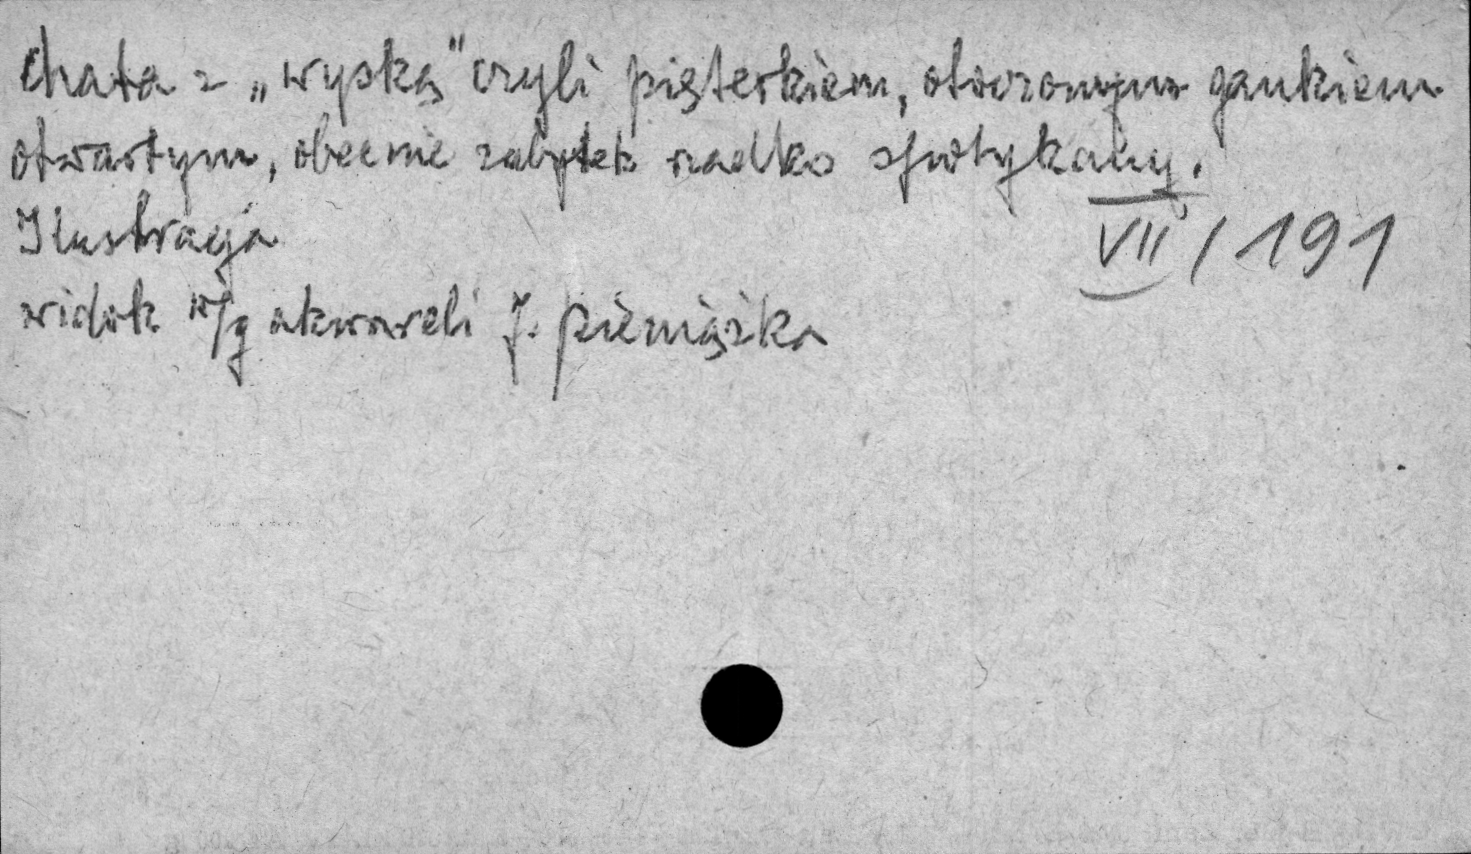 Chata z „wyską" czyli pięterkiem, otoczonym gankiem
otwartym, obecnie zabytek rzadko spotykany.
Ilustracja
VII / 191
widok w/g akwareli J. Pieniążka